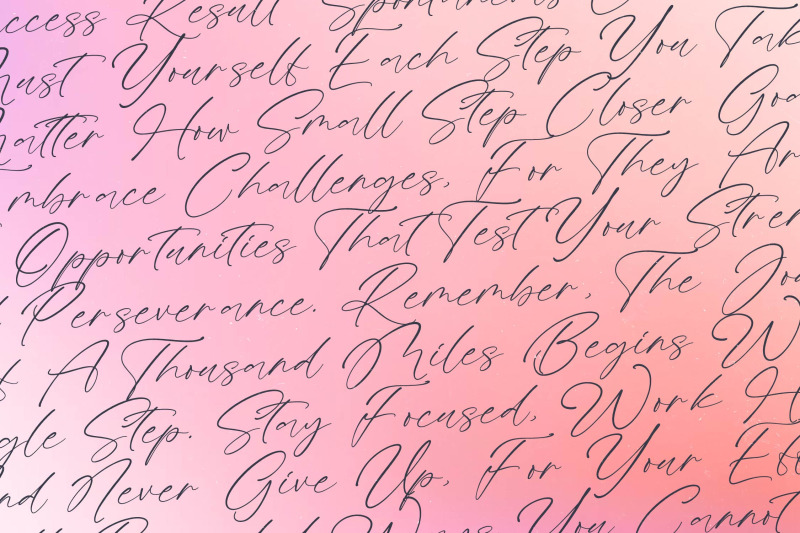 ccess Result Spontaneous
Trust Yourself Each Step You Tak
Matter How Small Step Closer Goa
mbrace Challenges, For They Ar
Opportunities That Test Your Stren
Perseverance. Remember, The Jou
f A Thousand Miles Begins W
gle Step. Stay Focused, Work H
nd Never Give Up, For Your Eff
You Cannot